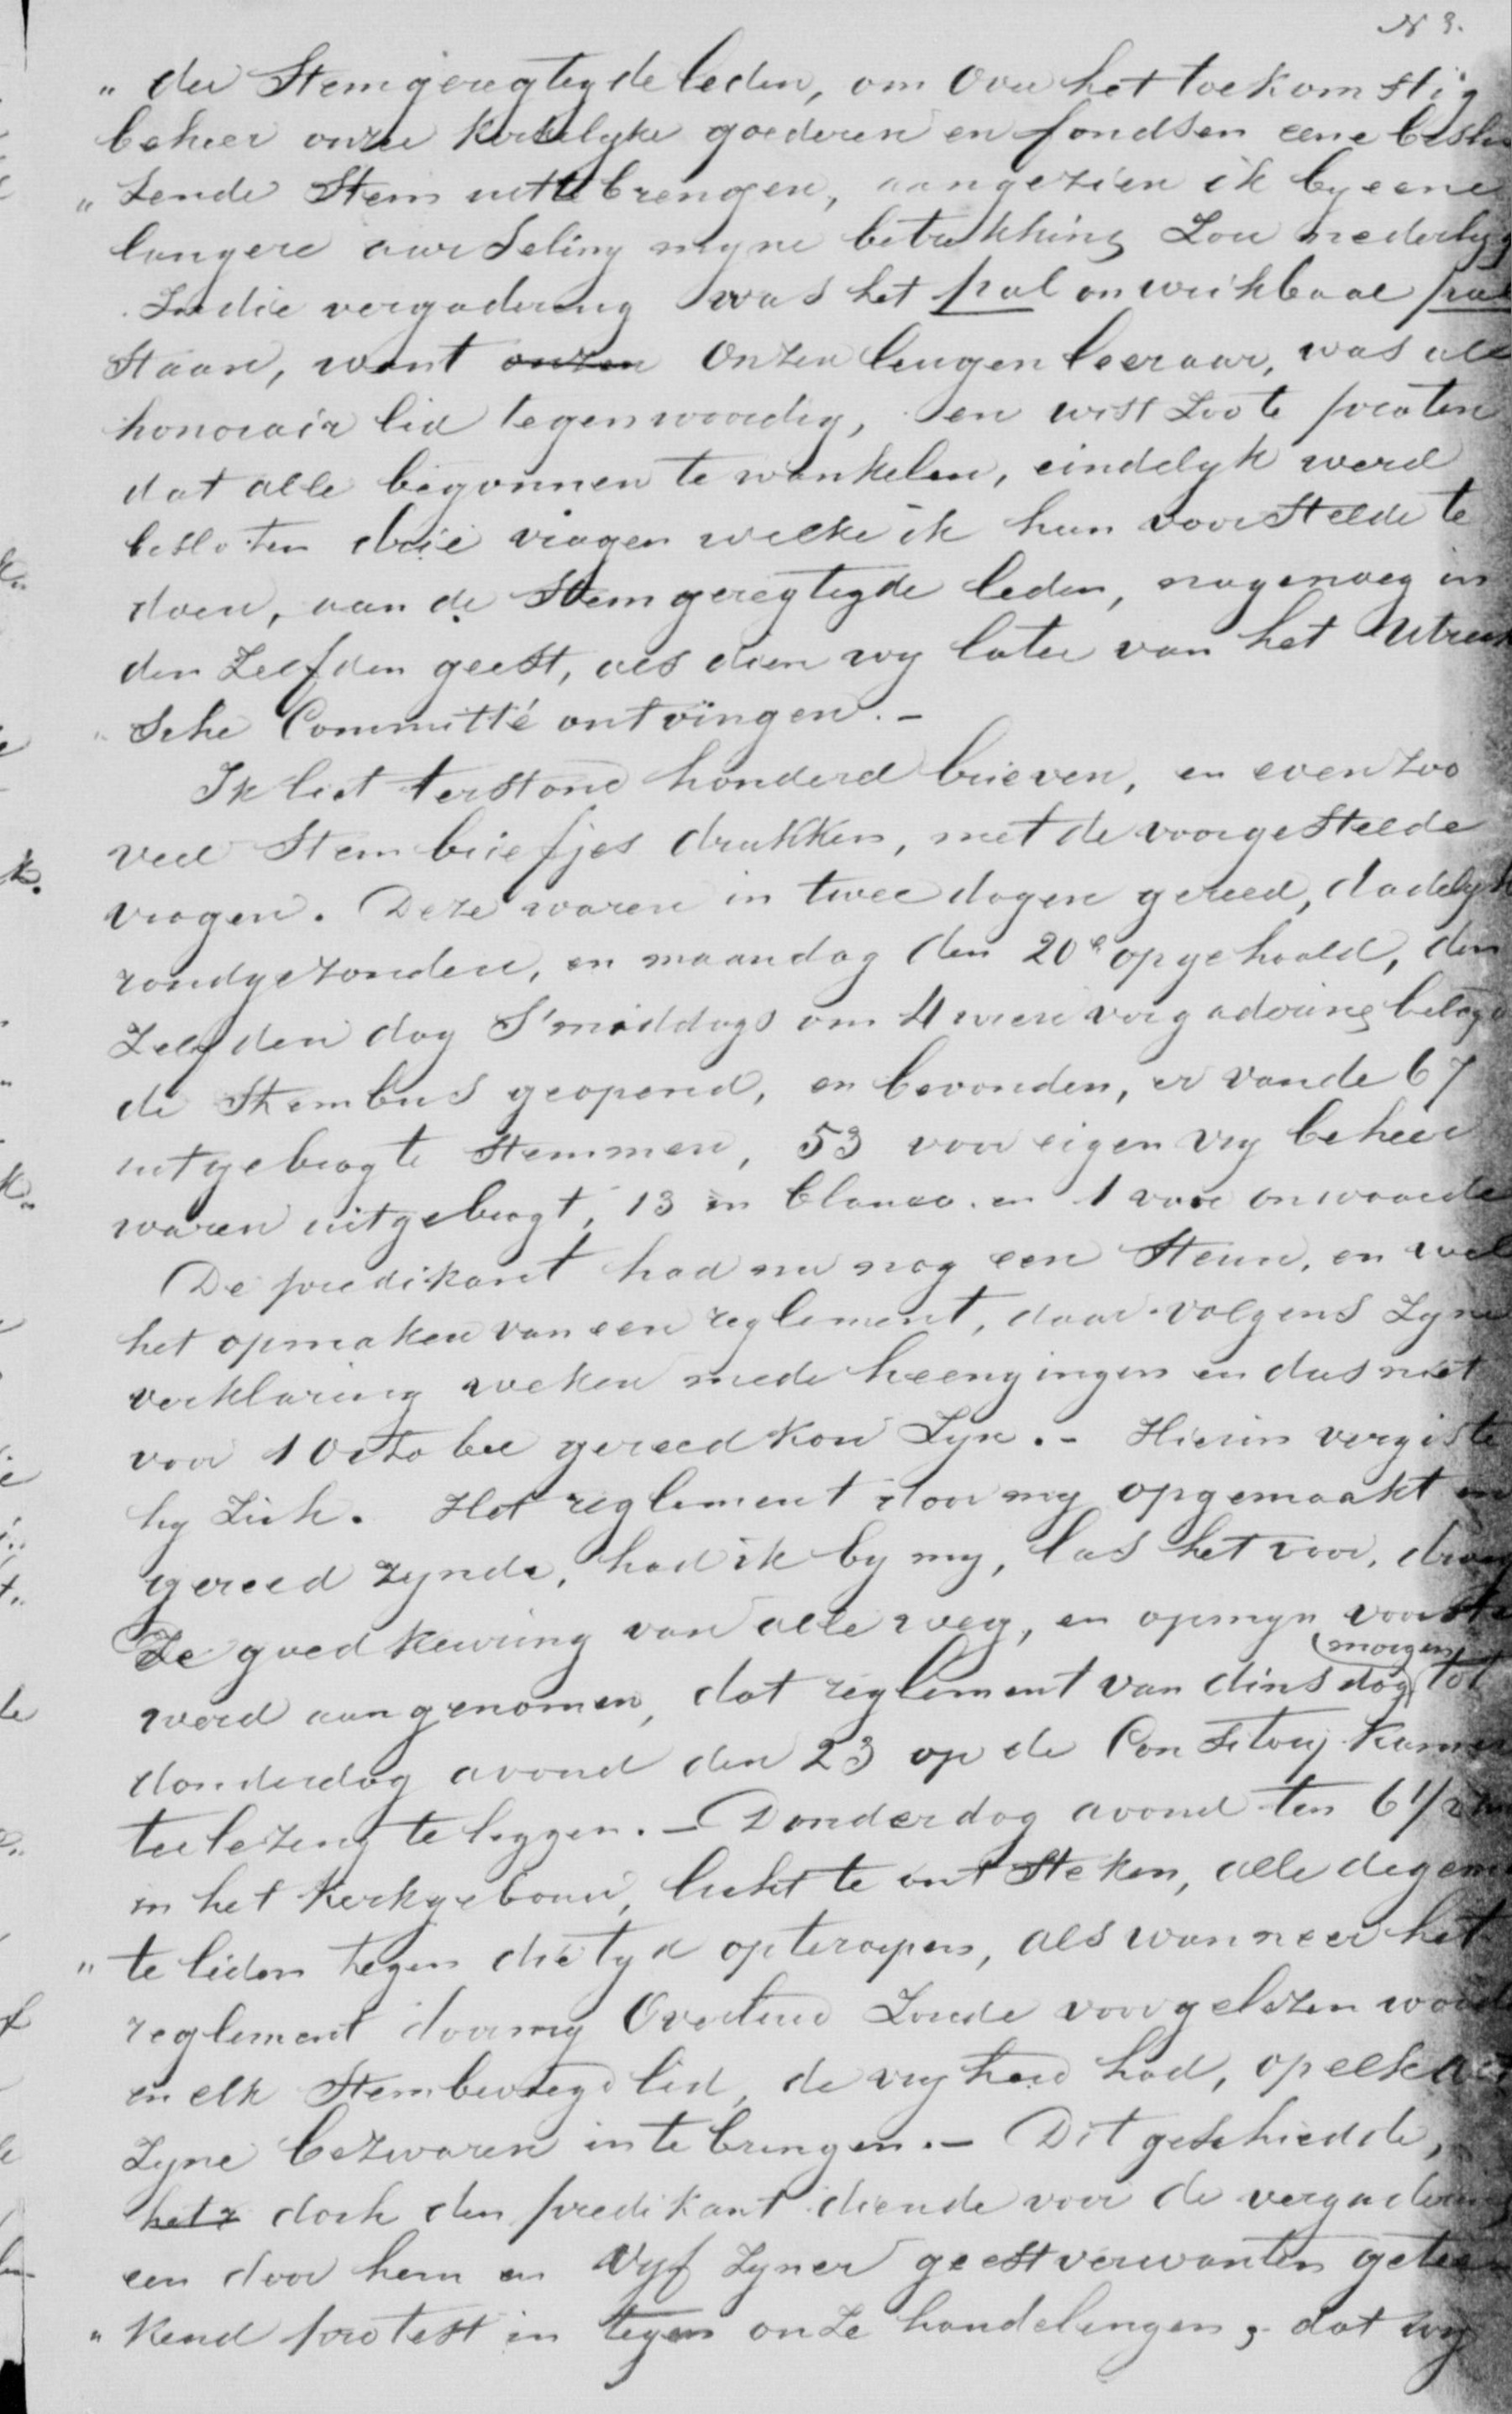 N 3.
„ der Stemgeregtigde leden, om Over het toekomstig
beheer onzer kerkelyke goederen en fondsen eene beslis
„ Sende Stem uittebrengen, aangezien ik by eene
langere aarseling myne betrekking Zou nederleg
In die vergadering was het pal onwrikbaar pal
Staan, want onzen Onzen leugen leeraar, was als
honorair lid tegenwoordig, en wist Zoo te praten
dat alle begonnen te wankelen, eindelyk werd
besloten drie vragen welke ik hun voorstelde te
doen, aan de Stemgeregtigde leden, nagenoeg in
den Zelfden geest, als dien wy later van het Utrech
„ Sche Committé ontvingen. –
Ik liet terstond honderd brieven, en even zoo
veel Stembriefjes drukken, met de voorgestelde
vragen. Deze waren in twee dagen gereed, dadelyk
rondgezonden, en maandag den 20e opgehaald, den
Zelfden dag S'middags om 4 uren vergadering belegd
de Stembus geopend, en bevonden, er van de 67
uitgebragte Stemmen, 53 voor eigen vry beheer
waren uitgebragt, 13 in blanco. en 1 van onwaarde
De predikant had nu nog een Steun, en wel
het opmaken van een reglement, daar volgens Zyne
verklaring weken mede heengingen en dus niet
voor 1 October gereed kon Zyn. – Hierin vergiste
hy Zich. Het reglement door my opgemaakt en
gereed zynde, had ik by my, las het voor, droeg
De goedkeuring van alle weg, en op myn voorste
werd aangenomen, dat reglement van dinsdag (morgen) tot
donderdag avond den 23 op de Consistorij Kamer
ter lezing te leggen. – Donderdag avond ten 6 1/2
in het Kerkgebouw, licht te ont Steken, alle de gemeen
„ te leden tegen die tyd opteroepen, als wanneer het
reglement door my Overluid Zoude voorgelezen word
en elk Stembevoegd lid, de vryheid had, op elk
Zyne bezwaren inte brengen. – Dit geschiedde,
het doch den predikant diende voor de vergadering
een door hem en Vyf Zyner geestverwanten getee
„ kend protest in tegen onze handelingen, – dat wy